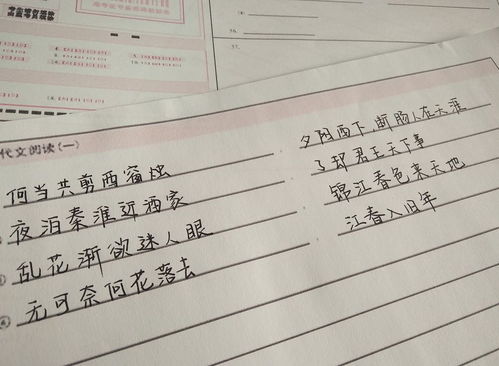 代文阅读(一)
何当共剪西窗烛
夜泊秦淮近酒家
乱花渐欲迷人眼
④ 无可奈何花落去
夕阳西下,断肠人在天涯
了却君王天下事
锦江春色来天地
江春入旧年
36.
37.